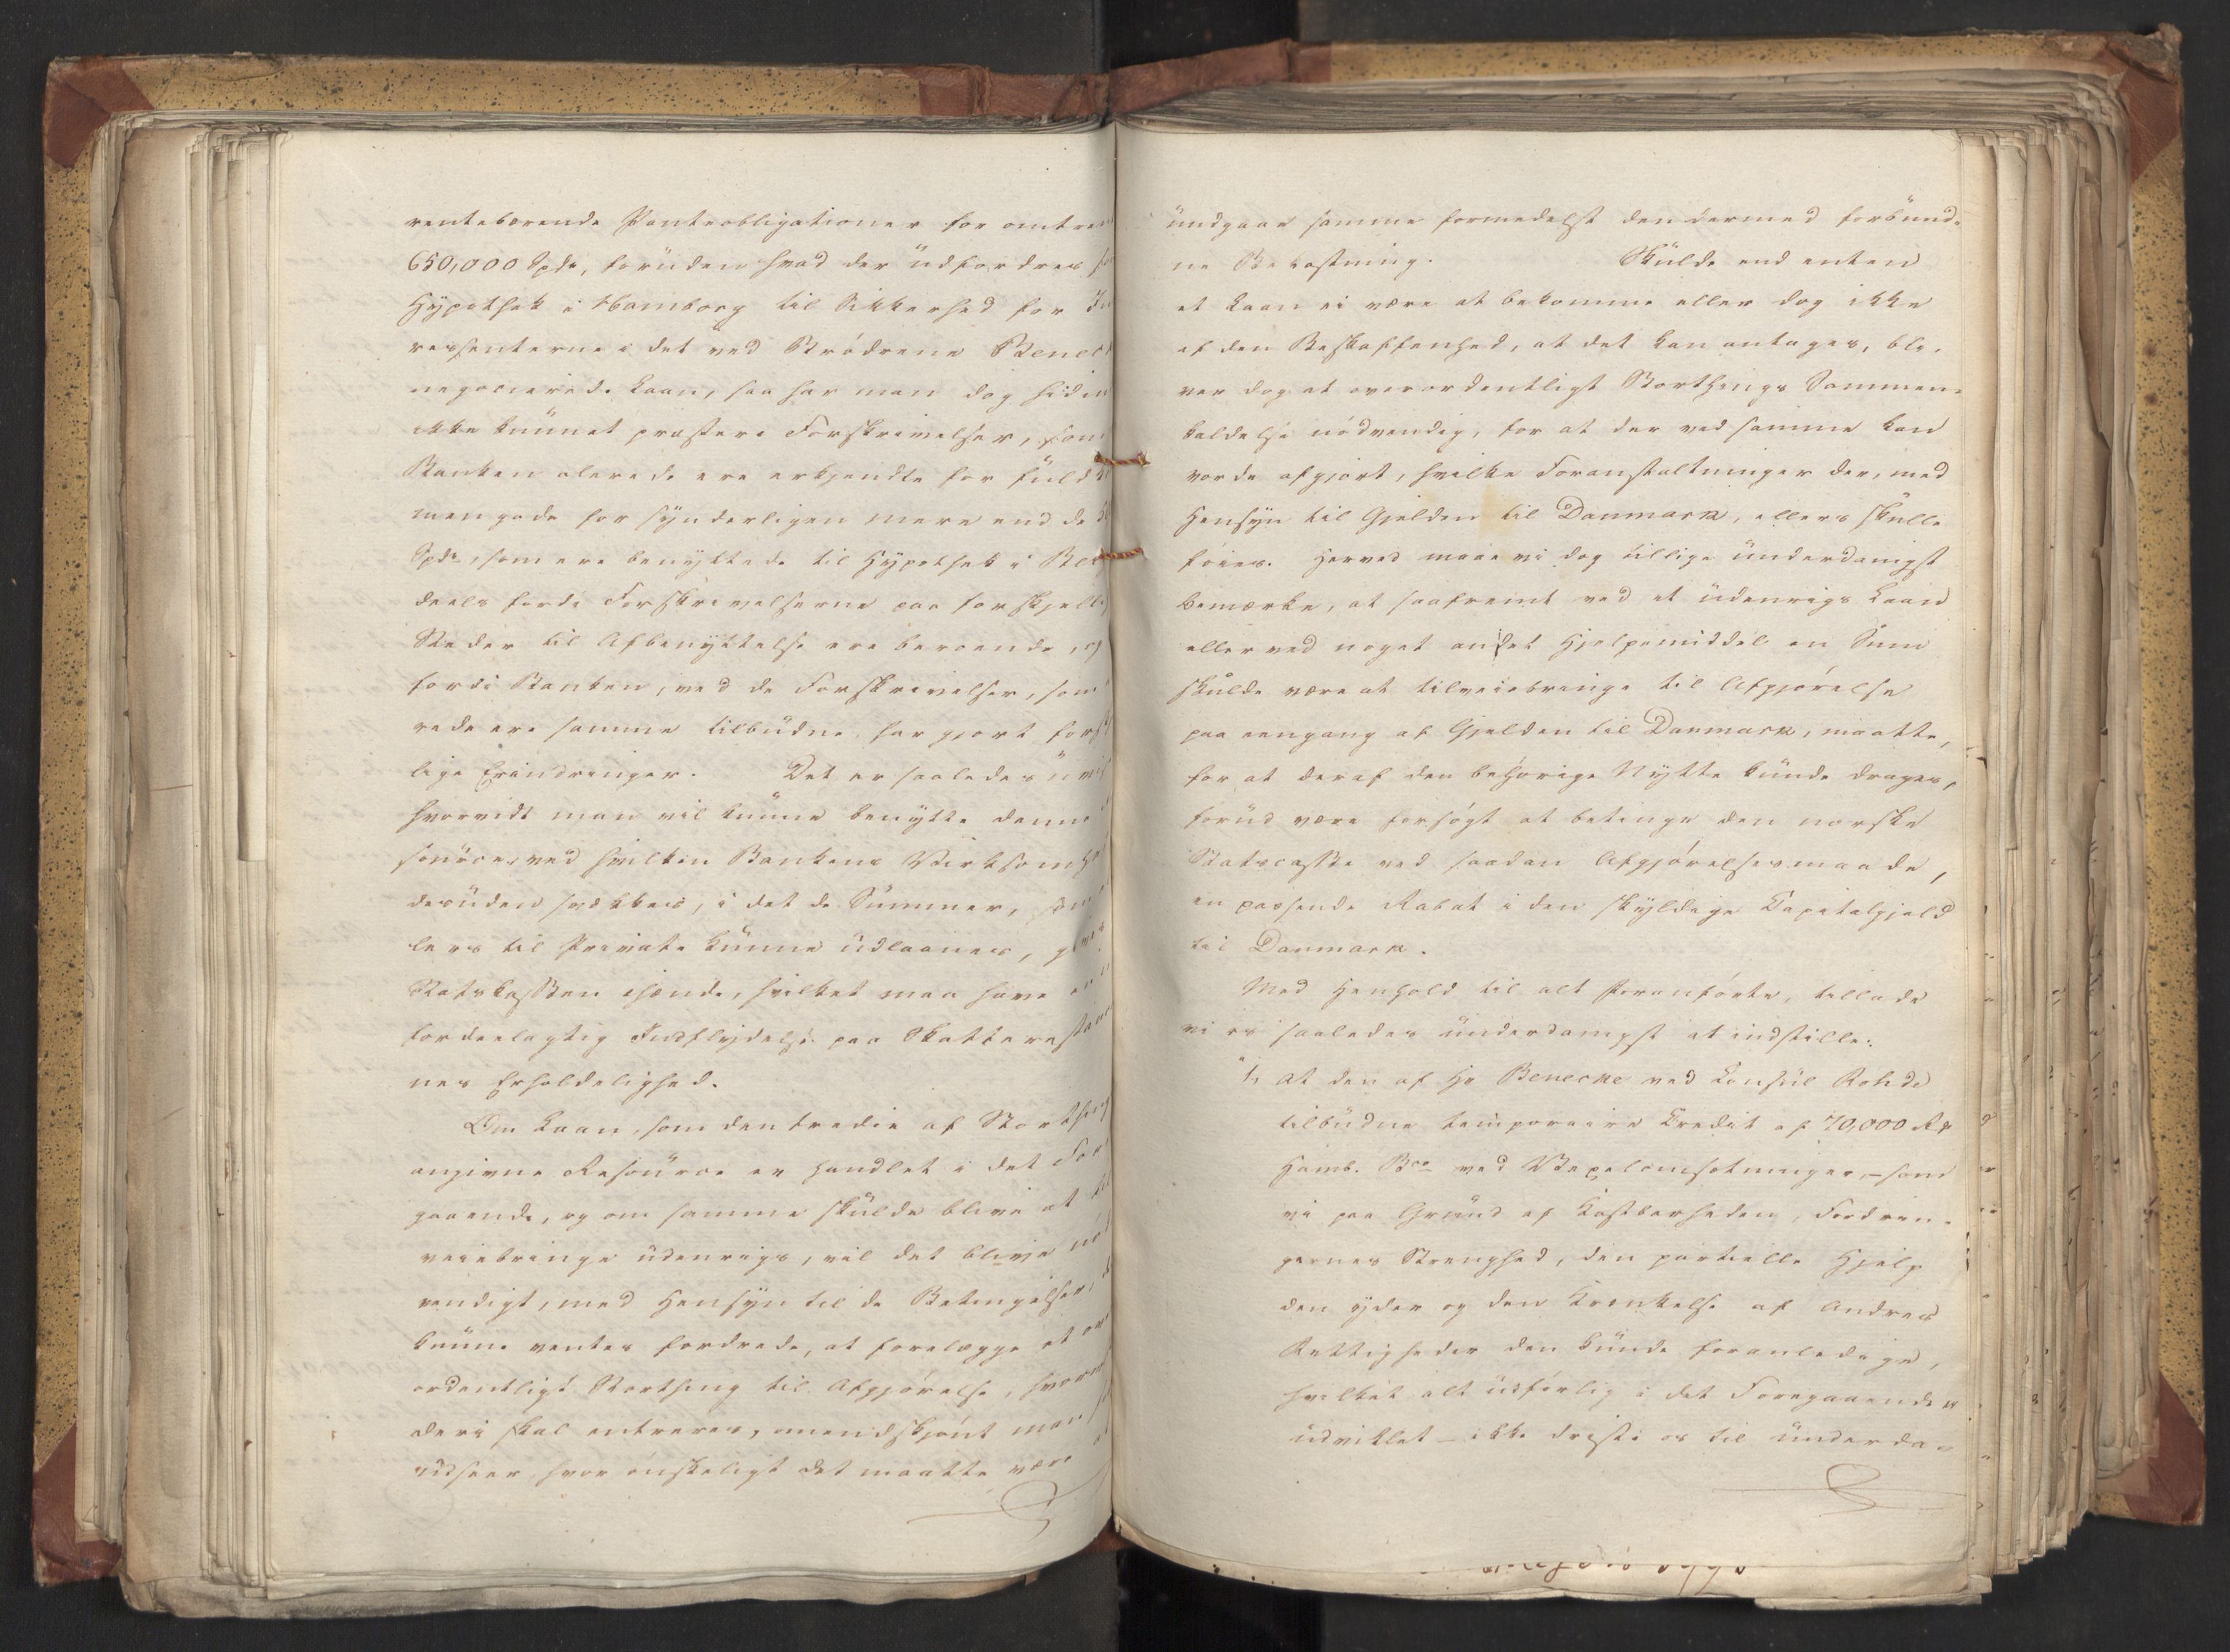 rentebærende Panteobligationer for omtren
650,000 Spdr, foruden hvad der udfordres
Hypothek i Hamborg til Sikkerhed for In
ressenterne i det ved Brødrene Benec
negocierede Laan, saa har man dog hidin
ikke kunnet præstere Forskrivelser, som
Banken alerede ere erkjendte for fuld
men gode for synderligen mere end de
Spdr, som ere benyttede til Hypothek i
deels fordi Forskrivelserne paa forskjelli
Steder til Afbenyttelse ere beroende, og
fordi Banken, ved de Forskrivelser, som
rede ere samme tilbudne, har gjort forst
lige Erindringer. Det er saaledes uvis
hvorvidt man vil kunne benytte denne
source, ved hvilken Bankens Virksomhe
desuden svækkes, i det de Summer, som
lers til Private kunne udlaanes, gives
Statskassen ihænde, hvilket maa have en
fordeelagtig Indflydelse paa Skatterestan
nes Erholdelighed.
Om Laan, som den tredie af Storthing
angivne Resource er handlet i det For
gaaende, og om samme skulde blive at til
veiebringe udenrigs, vil det blive nød
vendigt, med Hensyn til de Betingelser,
kunne ventes fordrede, at forelægge et
ordentligt Storthing til Afgjørelse, hvorvi
deri skal entreres, omendskjønt man
indseer hvor ønskeligt det maatte være at
undgaae samme formedelst den dermed forbund-
ne Bekostning. Skulde end enten
et Laan ei være at bekomme eller dog ikke
af den Beskaffenhed, at det kan antages, bli-
ver dog et overordentligt Storthings Sammen-
kaldelse nødvendig, for at der ved samme kan
vorde afgjort, hvilke Foranstaltninger der, med
Hensyn til Gjelden til Danmark, ellers skulle
føies. Herved maae vi dog tillige underdanigst
bemærke, at saafremt ved et udenrigs Laan
eller ved noget andet Hjelpemiddel en Sum
skulde være at tilveiebringe til Afgjørelse
paa eengang af Gjelden til Danmark, maatte,
for at deraf den behørige Nytte kunde drages,
forud være forsøgt at betinge den norske
Statscasse ved saadan Afgjørelsesmaade,
en passende Rabat i den skyldige Capitalgjeld
til Danmark.
Med Henhold til alt Foranførte, tillade
vi os saaledes underdanigst at indstille:
"1, at den af Hr Benecke ved Konsul Rohde
tilbudne temporaire Credit af 70,000 Rd
Hamb. Bco ved Vexelomsætninger, – som
vi paa Grund af Kostbarheden, Fordrin-
gernes Strenghed, den partielle Hjelp
den yder og den Krænkelse af Andres
Rettigheder den kunde foranledige,
hvilket alt udførlig i det Foregaaende er
udviklet – ikke driste os til underda-